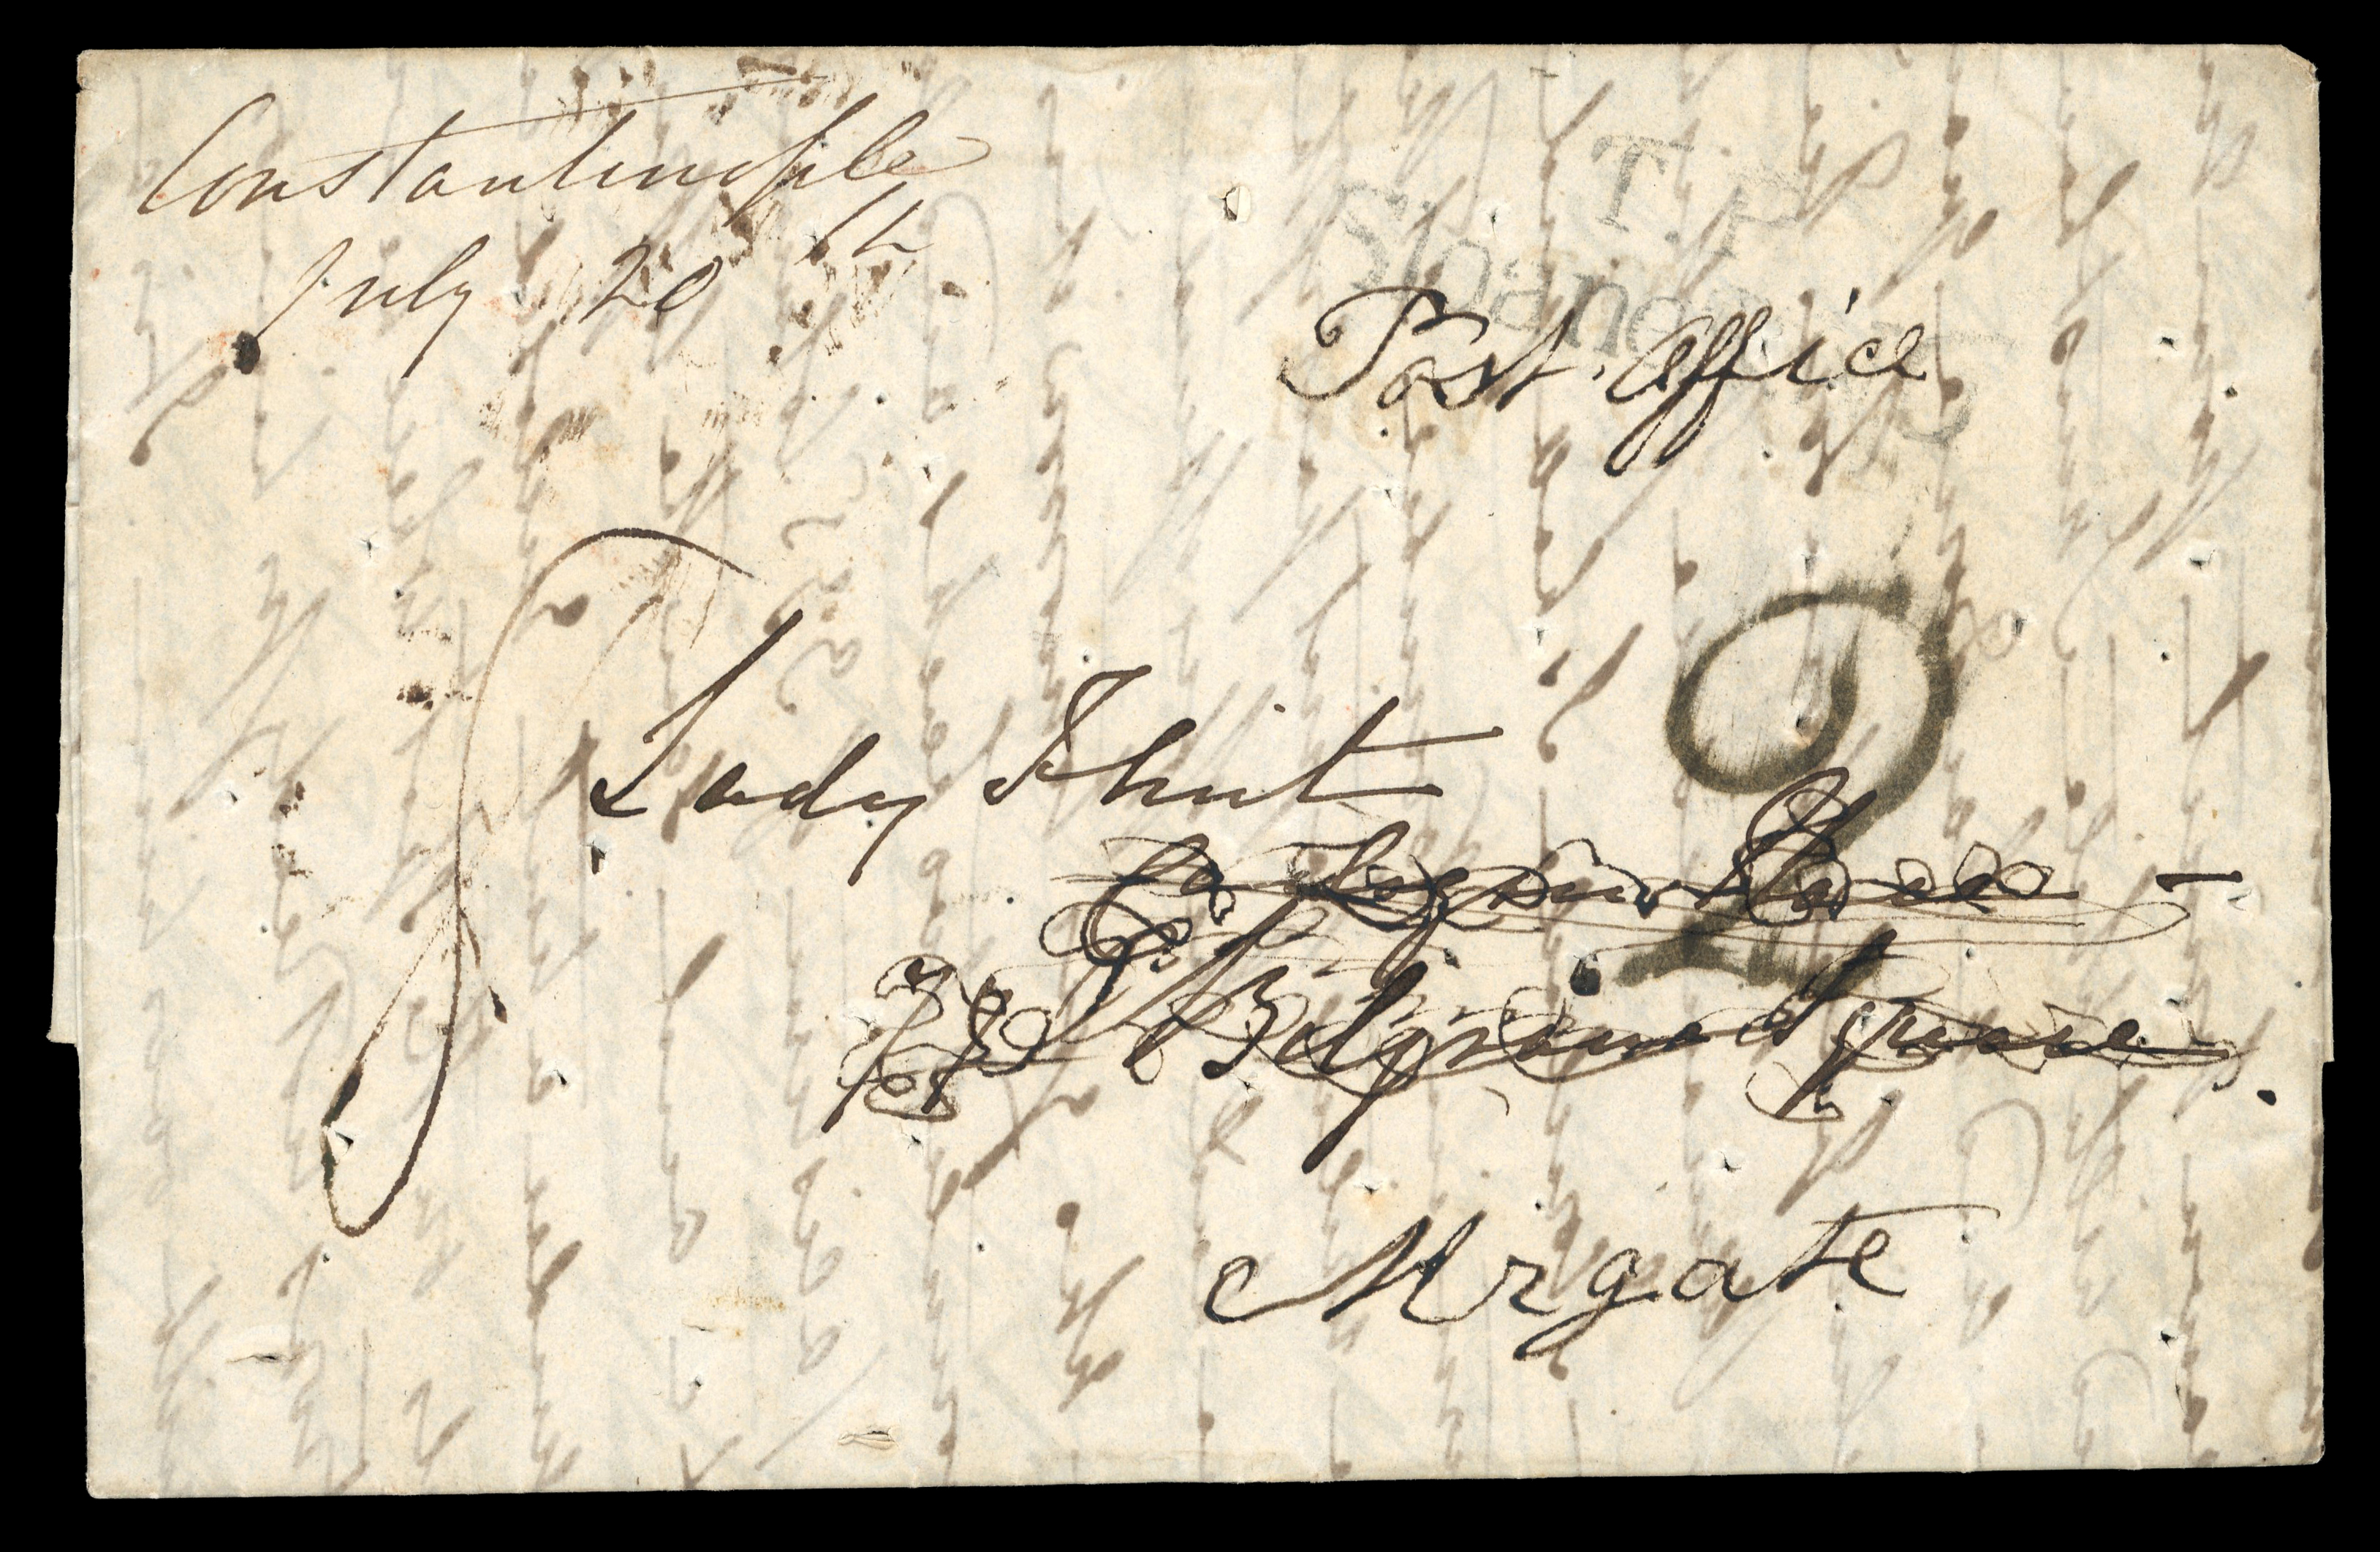 Constantinople
July 20th
T.P
Sloane
Post. Office
2
Lady Shut
78 Belgrave Square.
Mrgate